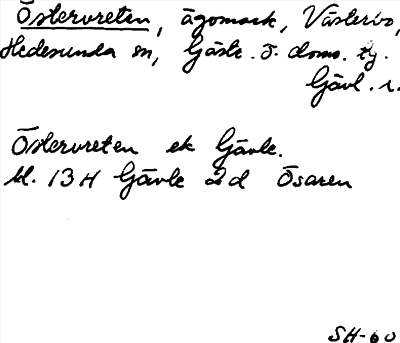 Östervreten, ägomark, Västerbo,
Hedesunda sn, Gästr. ö. doms. tg.
Gävl. l.
Östervreten ek Gävle.
bl. 13H Gävle 2d Ösaren
SH-60